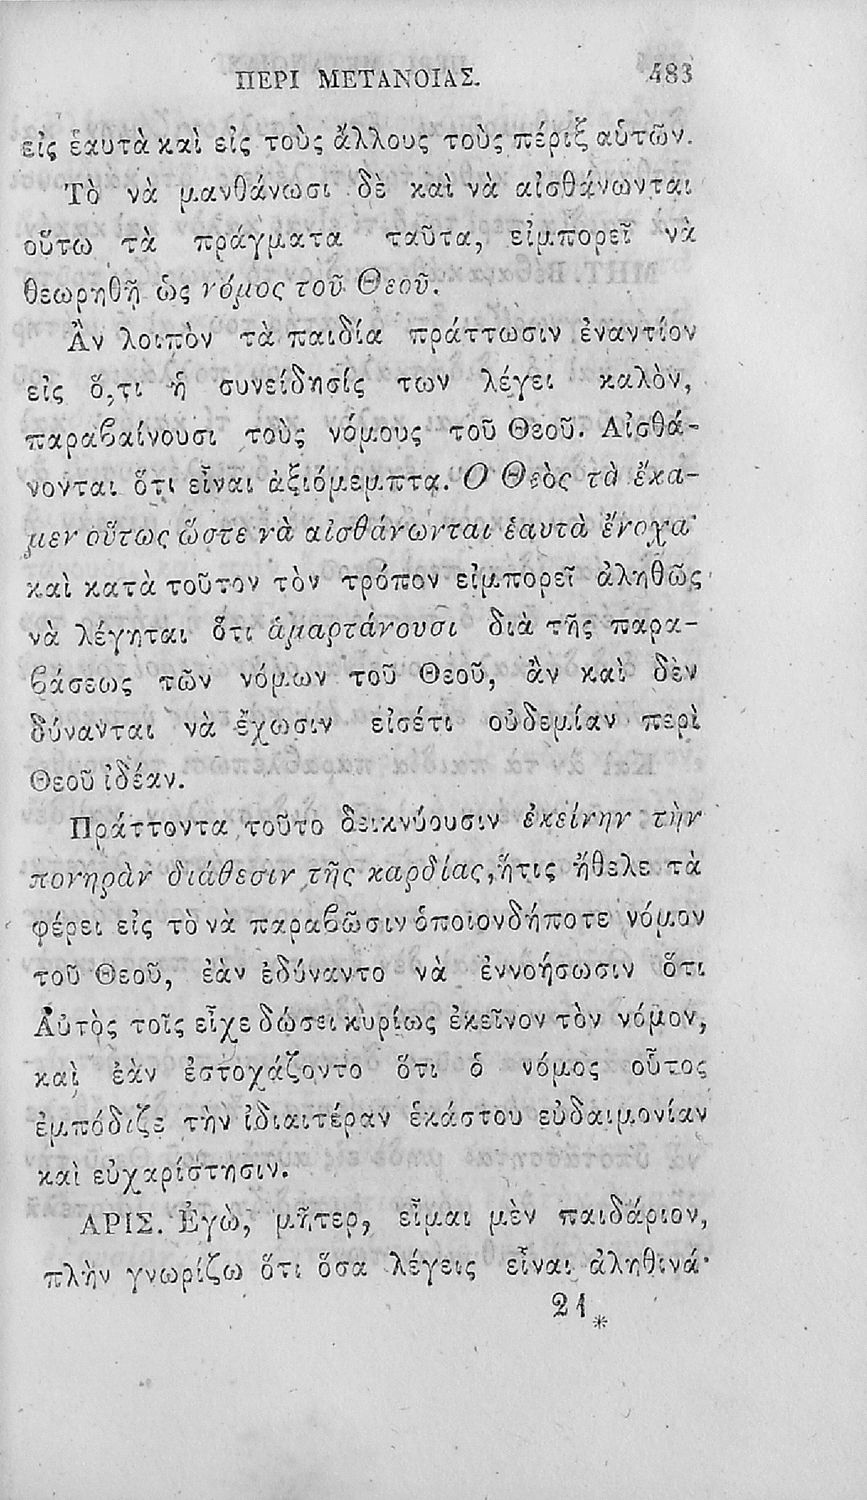 ΠΕΡΙ ΜΕΤΑΝΟΙΑΣ. 483
εἰς ἑαυτὰ καὶ εἰς τοὺς ἄλλους τοὺς πέριξ αὑτῶν.
Τὸ νὰ μανθάνωσι δὲ καὶ νὰ αἰσθάνωνται
οὕτω τὰ πράγματα ταῦτα, εἰμπορεῖ νὰ
θεωρηθῇ ὡς νόμος τοῦ Θεοῦ.
Ἂν λοιπὸν τὰ παιδία πράττωσιν ἐναντίον
εἰς ὅ,τι ἡ συνείδησίς των λέγει καλὸν,
παραβαίνουσι τοὺς νόμους τοῦ Θεοῦ. Αἰσθά-
νονται ὅτι εἶναι ἀξιόμεμπτα. Ὁ Θεὸς τὰ ἔκα-
μεν οὕτως ὥστε νὰ αἰσθάνωνται ἑαυτὰ ἔνοχα·
καὶ κατὰ τοῦτον τὸν τρόπον εἰμπορεῖ ἀληθῶς
νὰ λέγηται ὅτι ἁμαρτάνουσι διὰ τῆς παρα-
βάσεως τῶν νόμων τοῦ Θεοῦ, ἂν καὶ δὲν
δύνανται νὰ ἔχωσιν εἰσέτι οὐδεμίαν περὶ
Θεοῦ ἰδέαν.
Πράττοντα τοῦτο δεικνύουσιν ἐκείνην τὴν
πονηρὰν διάθεσιν τῆς καρδίας, ἥτις ἤθελε τὰ
φέρει εἰς τὸ νὰ παραβῶσιν ὁποιονδήποτε νόμον
τοῦ Θεοῦ, ἐὰν ἐδύναντο νὰ ἐννοήσωσιν ὅτι
Αὐτὸς τοῖς εἶχε δώσει κυρίως ἐκεῖνον τὸν νόμον,
καὶ ἐὰν ἐστοχάζοντο ὅτι ὁ νόμος οὗτος
ἐμπόδιζε τὴν ἰδιαιτέραν ἑκάστου εὐδαιμονίαν
καὶ εὐχαρίστησιν.
ΑΡΙΣ. Ἐγὼ, μῆτερ, εἶμαι μὲν παιδάριον,
πλὴν γνωρίζω ὅτι ὅσα λέγεις εἶναι ἀληθινά·
21*